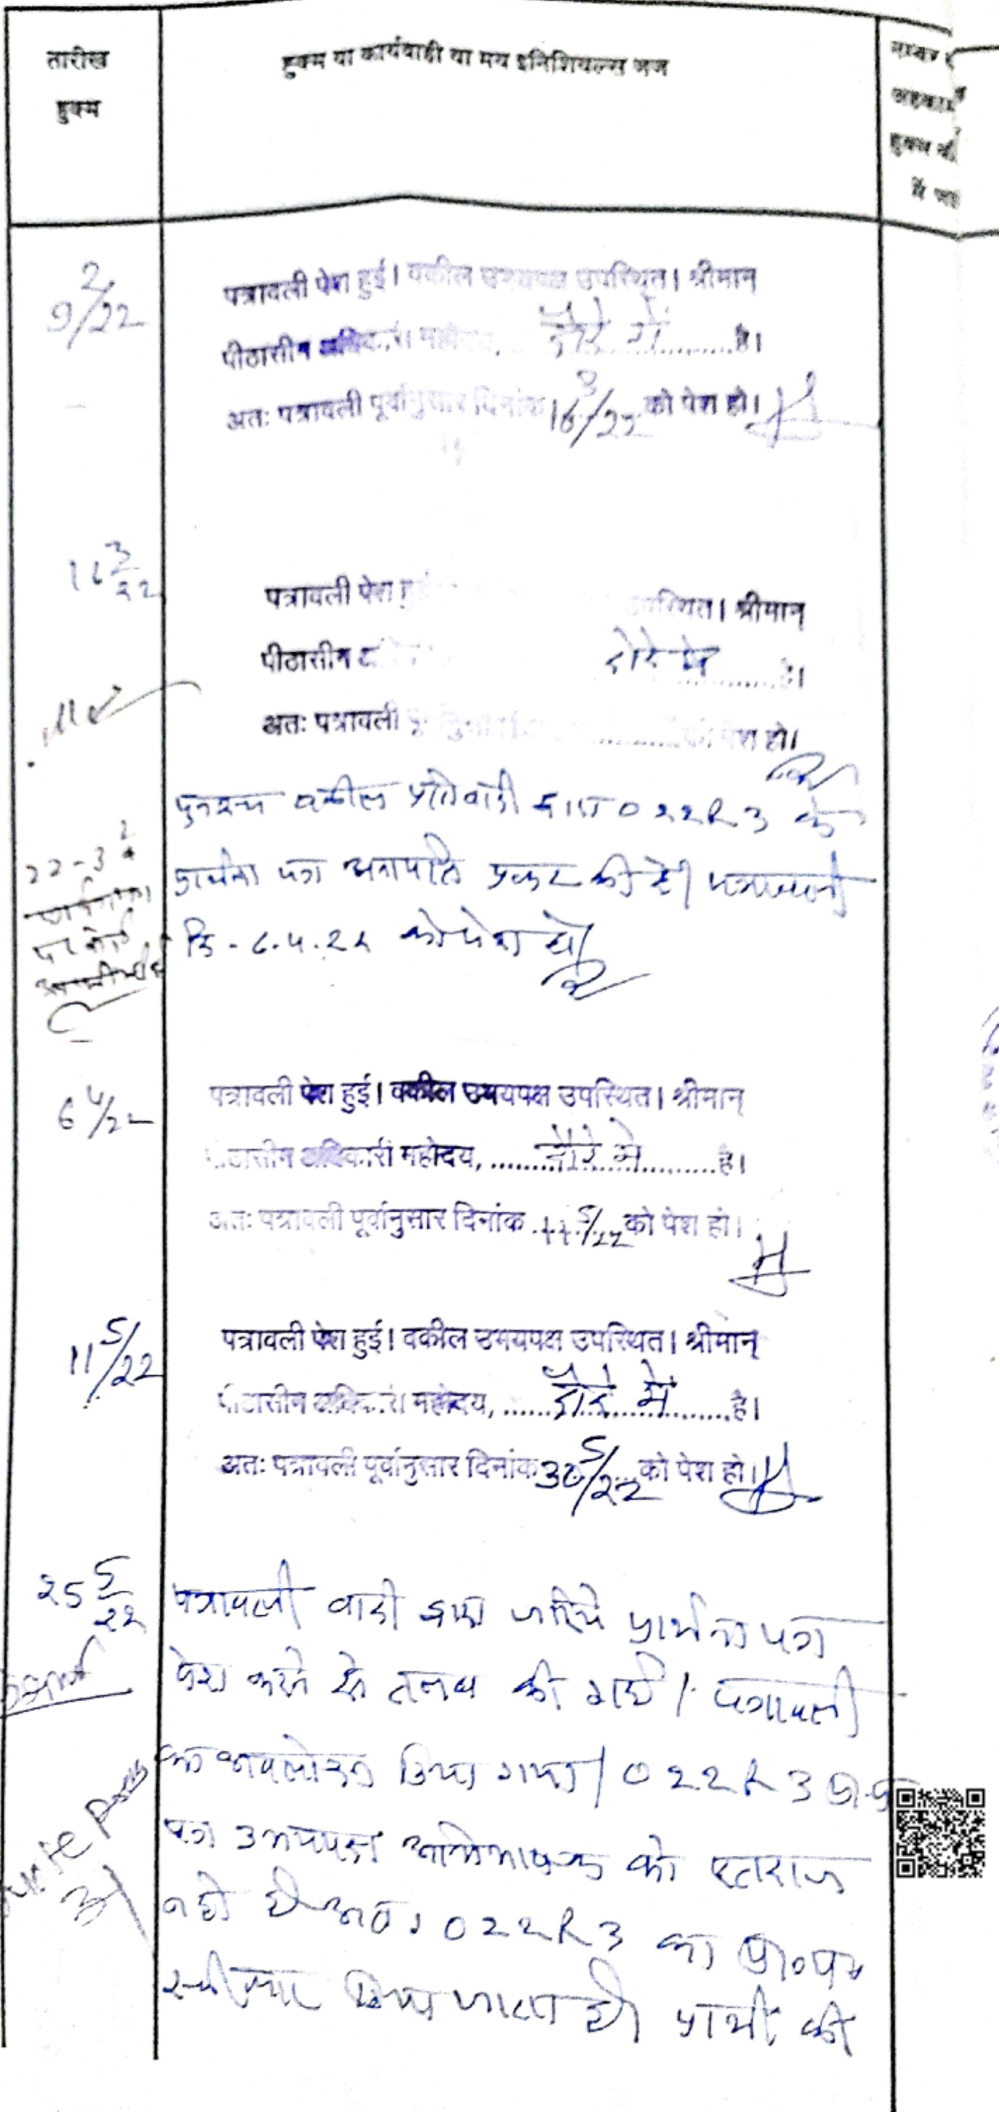 तारीख
हुक्म
हुक्म या कार्यवाही या मय इनिशियल्स जज
नम्बर
अहकाम
हुक्म की
में जा
9 2/22
पत्रावली पेश हुई। वकील उभयपक्ष उपस्थित। श्रीमान्
पीठासीन अधिकारी महोदय, दौरे में है।
अतः पत्रावली पूर्वानुसार दिनांक 16 3/22 को पेश हो।
16 3/22
पत्रावली पेश हुई उपस्थित। श्रीमान्
पीठासीन दौरे में है।
अतः पत्रावली को पेश हो।
पुनश्च वकील प्रतिवादी द्वारा O 22 R 3 के
प्रार्थना पत्र अनापत्ति प्रकट की है। पत्रावली
दि - 6.4.22 को पेश हो।
6 4/22
पत्रावली पेश हुई। वकील उभयपक्ष उपस्थित। श्रीमान्
पीठासीन अधिकारी महोदय, दौरे में है।
अतः पत्रावली पूर्वानुसार दिनांक 11 5/22 को पेश हो।
11 5/22
पत्रावली पेश हुई। वकील उभयपक्ष उपस्थित। श्रीमान्
पीठासीन अधिकारी महोदय, दौरे में है।
अतः पत्रावली पूर्वानुसार दिनांक 30 5/22 को पेश हो।
25 5/22
पत्रावली वादी द्वारा जरिये प्रार्थना पत्र
पेश करने से तलब की गई। पत्रावली
का अवलोकन किया गया। O 22 R 3 प्रा.
पत्र उभयपक्ष अभिभाषक को एतराज
नही है अतः O 22 R 3 का प्रा० पत्र
स्वीकार किया जाता है। प्रार्थी की